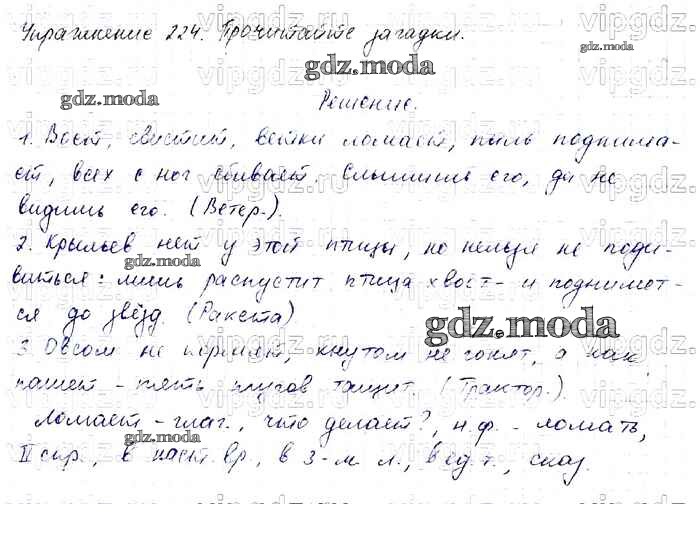 Упражнение 224. Прочитайте загадки.
gdz.moda
gdz.moda
Решение.
1. Воет, свистит, ветки ломает, пыль поднима-
ет, всех с ног сбивает. Слышишь его, да не
видишь его. (Ветер.).
2. Крыльев нет у этой птицы, но нельзя не поди-
gdz.moda
виться: лишь распустит птица хвост - и поднимет-
ся до звёзд. (Ракета)
gdz.moda
3. Овсом не кормят, кнутом не гонят, а как
пашет - пять плугов тащит. (Трактор.).
Ломает - глаг., что делает?, н.ф. - ломать,
gdz.moda
gdz.moda
II спр., в наст. вр., в 3-м л., в ед. ч., сказ.